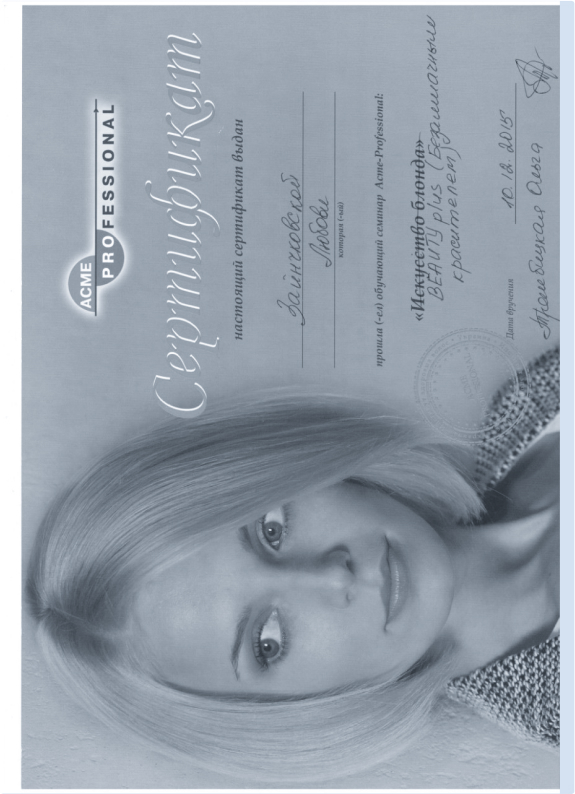 ACME
PROFESSIONAL
Сертификат
настоящий сертификат выдан
Зайнчковской
Любови
которая (-ый)
прошла (-ел) обучающий семинар Acme-Professional:
«Искусство блонда»
BEAUTY plus (Безаммиачным
красителем)
Дата вручения 10.12.2015
Ольга